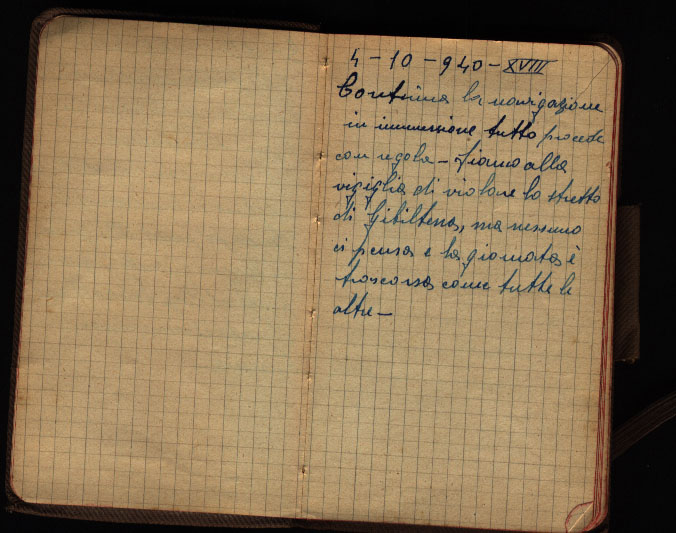 4 - 10 - 940 - XVIII
Continua la navigazione
in immersione tutto procede
con regola - Siamo alla
vigiglia di violare lo stretto
di Gibilterra, ma nessuno
ci pensa e la giornata è
trascorsa come tutte le
altre -